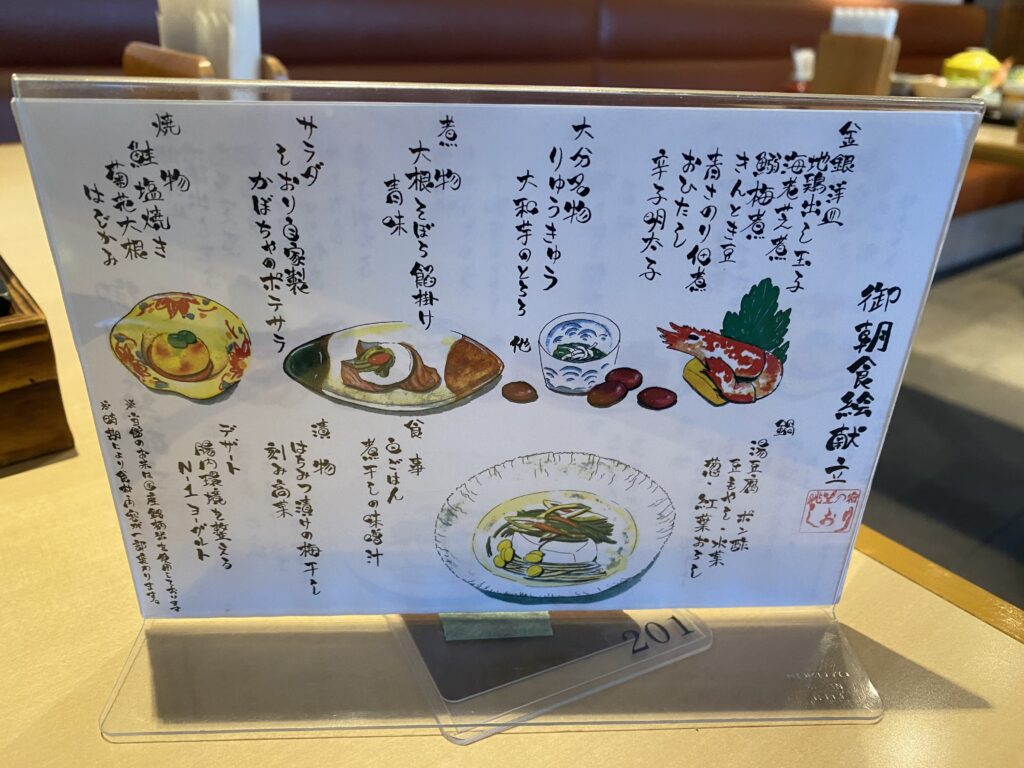 御朝食絵献立
しおり
金銀洋皿
地鶏出し玉子
海老芝煮
鰯梅煮
きんとき豆
青さのり佃煮
おひたし
辛子明太子
大分名物
りゅうきゅう
大和芋のとろろ
他
煮物
大根そぼろ餡掛け
青味
サラダ
しおり自家製
かぼちゃのポテサラ
焼物
鮭塩焼き
菊花大根
はじかみ
鍋
湯豆腐 ポン酢
豆もやし・水菜
葱・紅葉おろし
食事
白ごはん
煮干しの味噌汁
漬物
はちみつ漬けの梅干し
刻み高菜
デザート
腸内環境を整える
N-1ヨーグルト
※当館のお米は
※時期により食材・内容が一部変わります。
201